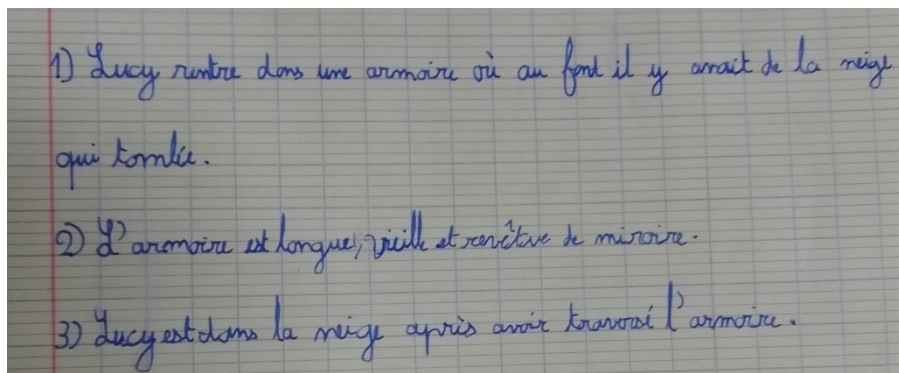 1) Lucy rentre dans une armoire où au font il y avait de la neige
qui tombée.
2) L'armoire est longue, vieille et revêtue de miroire.
3) Lucy est dans la neige après avoir traversé l'armoire.